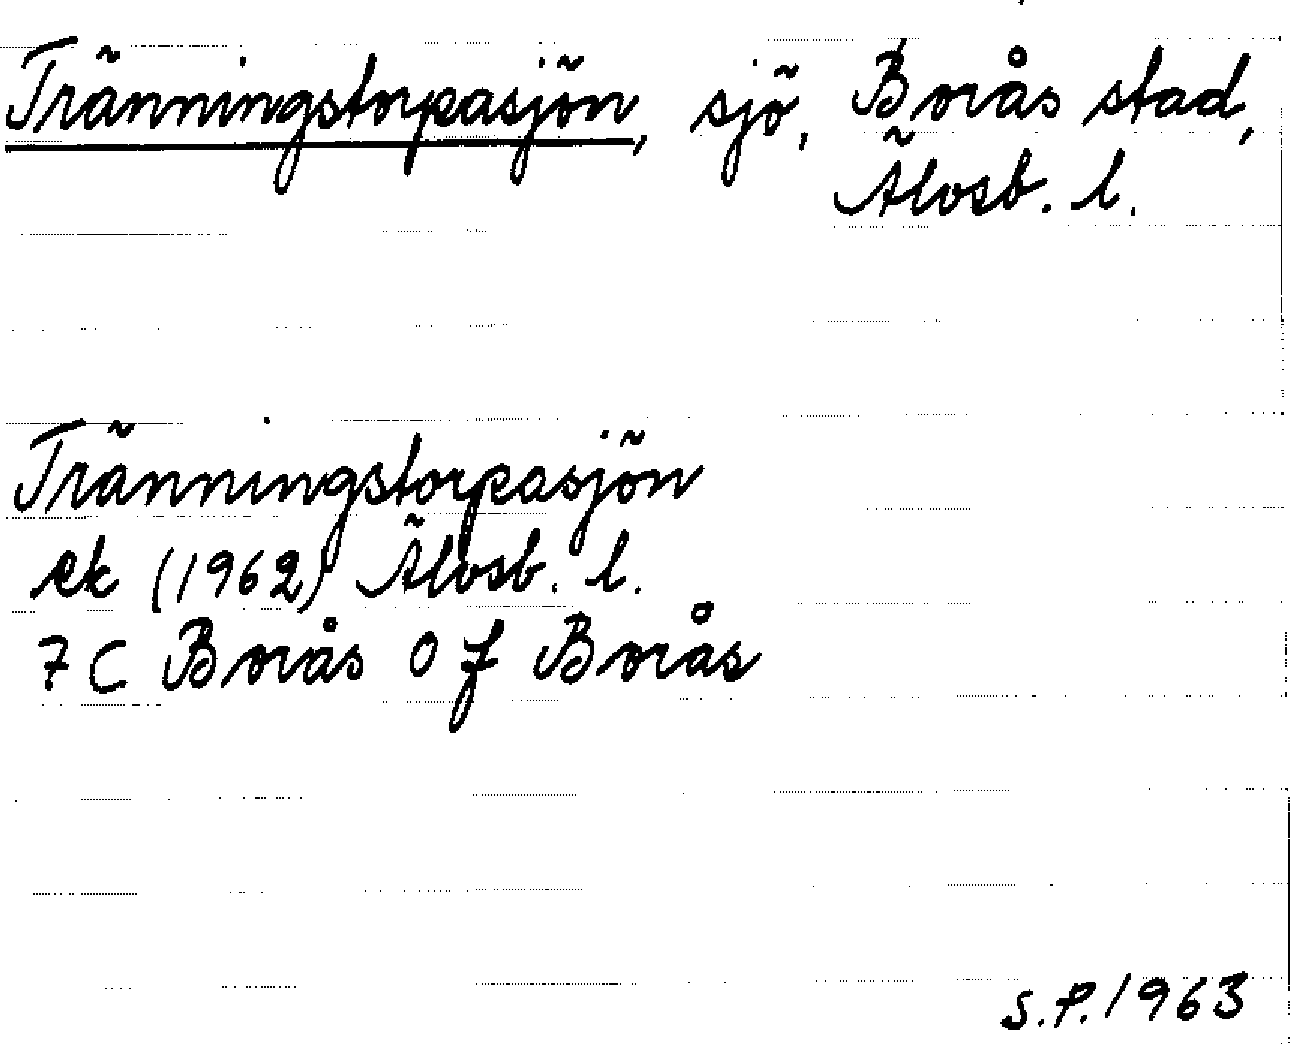 Tränningstorpasjön, sjö, Borås stad,
Älvsb. l.
Tränningstorpasjön
ek (1962) Älvsb. l.
7 C Borås 0 f Borås
S.P. 1963